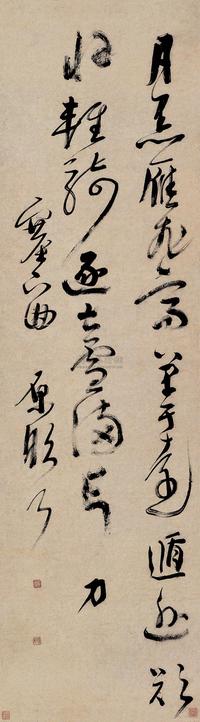 月黑雁飛高單于遠遁逃欲
將輕騎逐大雪滿弓刀
塞下曲